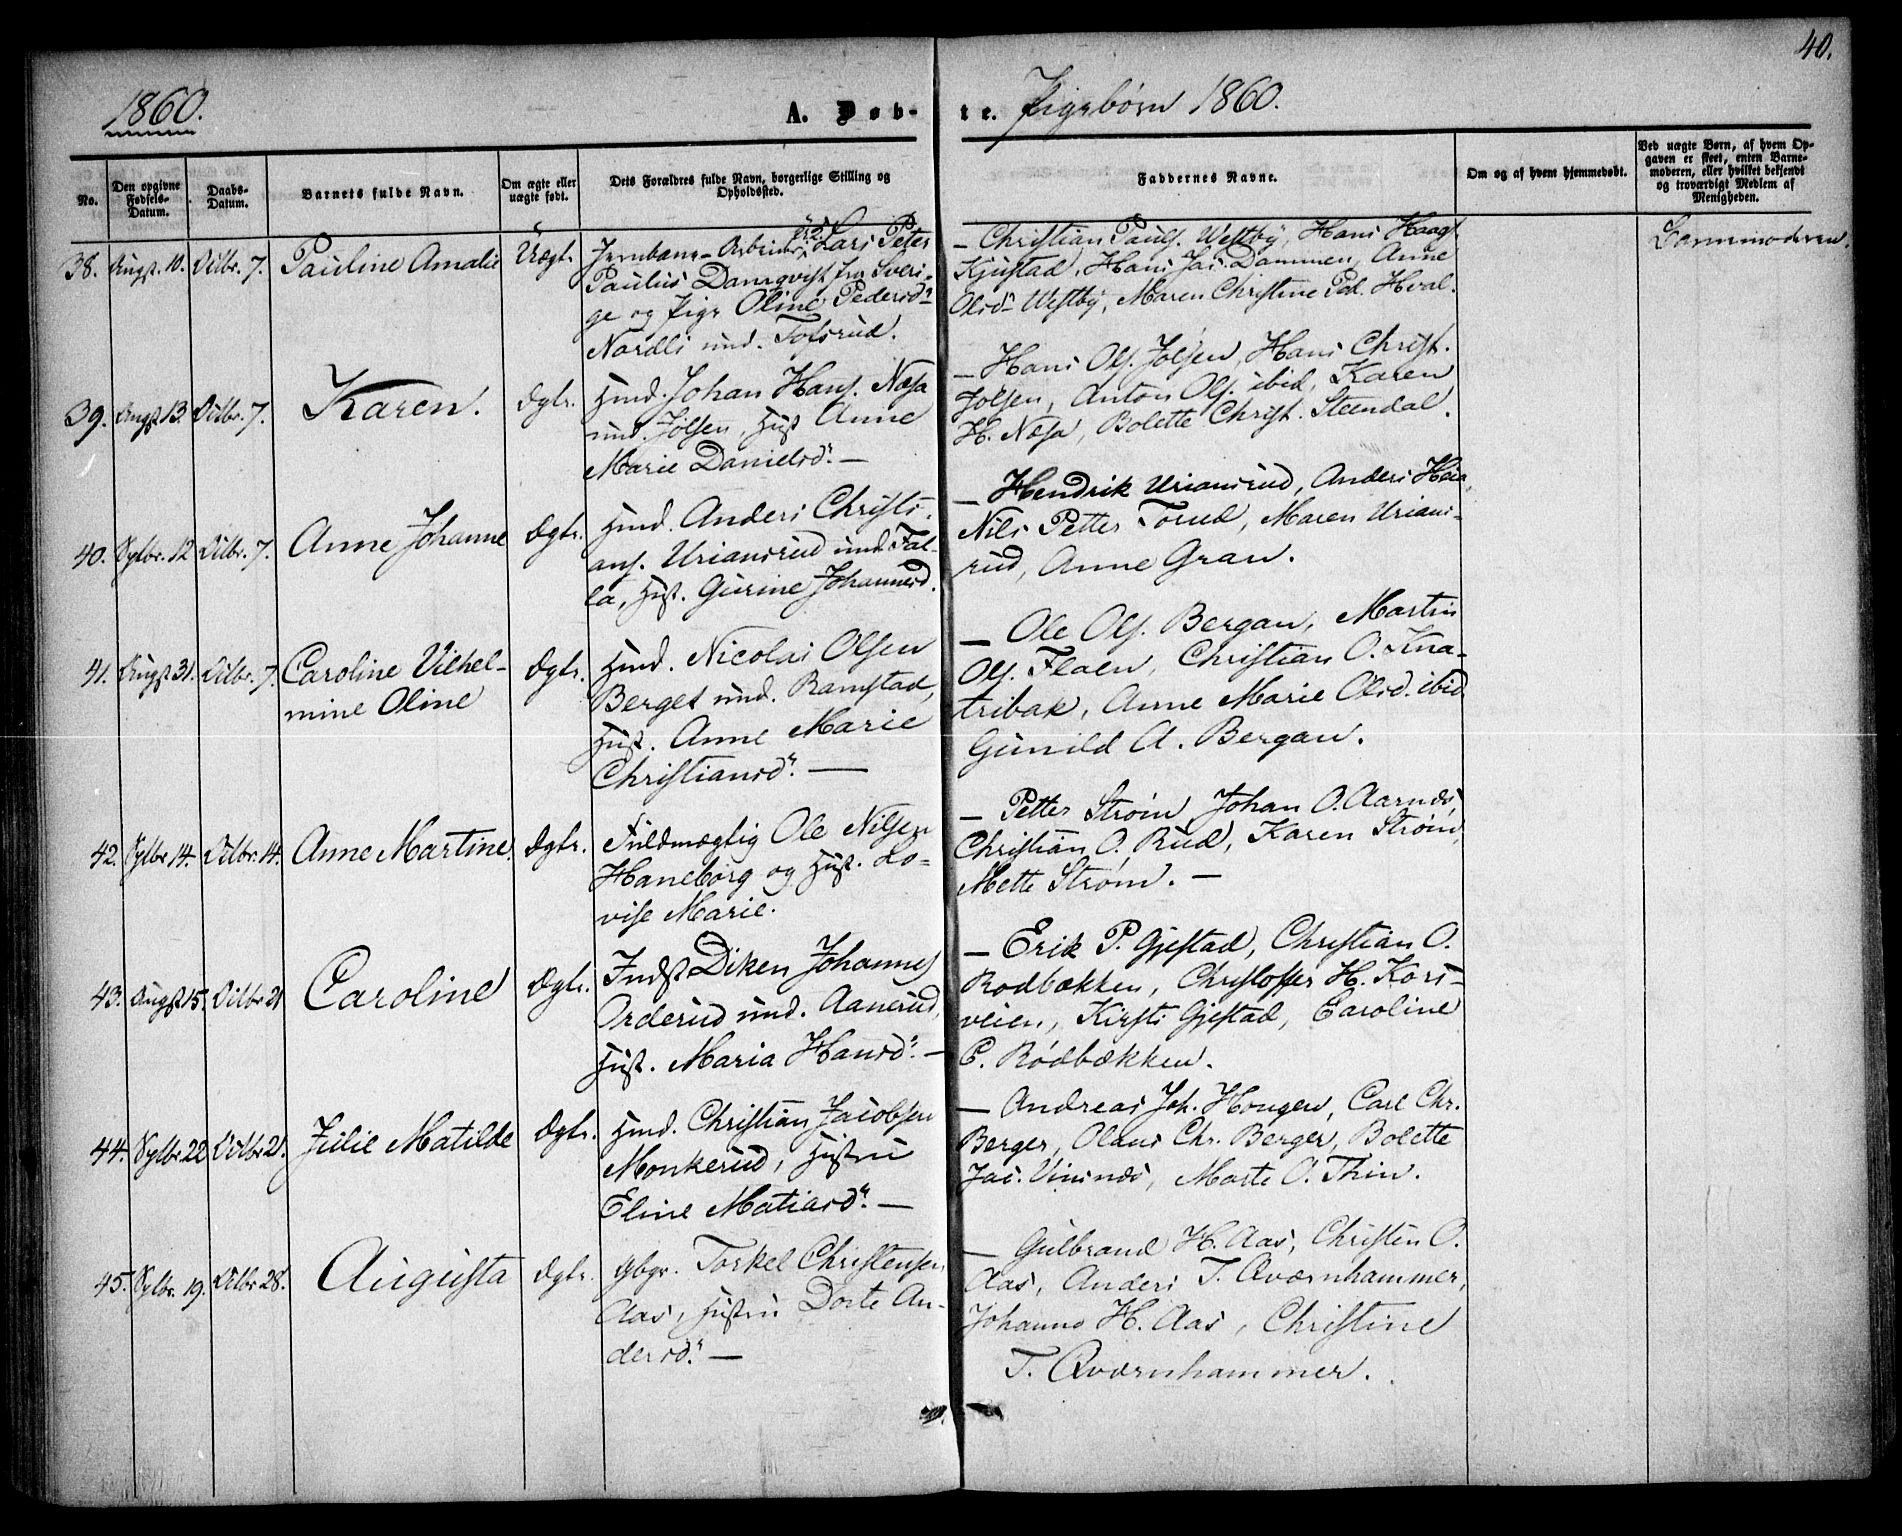 40.
1860.
A. Døb-
te. Pigebørn 1860.
No.
Den opgivne Fødsels-Datum.
Daabs-Datum.
Barnets fulde Navn.
Om ægte eller uægte født.
Dets Forældres fulde Navn, borgerlige Stilling og Opholdssted.
Faddernes Navne.
Om og af hvem hjemmedøbt.
Ved uægte Børn, af hvem Opgaven er skeet, enten Barnemoderen, eller hvilket bekjendt og troværdigt Medlem af Menigheden.
38. Augst. 10. Octbr. 7. Pauline Amalie Uægt. Jernbane-Arbeider Lars Peter
Paulus Damqvist fra Sveri-
ge og Pige Oline Pedersdr
Nordli und. Tofsrud.
— Christian Pauls. Westby, Hans Haags.
Kjustad, Hans Jac. Dammen, Anne
Olsdr Westby, Maren Christine Ped. Hval.
Barnemoderen.
39. Augst 13. Octbr. 7. Karen. Ægte. Hmd. Johan Hans. Næsa
und. Jølsen, Hust Anne
Marie Danielsdr. —
— Hans Ols. Jølsen, Hans Christ.
Jølsen, Anton Ols. ibid, Karen
H. Næsa, Bolette Christ. Steendal.
40. Septbr. 12 Octbr. 7. Anne Johanne Ægte. Hmd. Anders Christi-
ans. Uriansrud und. Fal-
la, Hust. Gurine Johannesd.
— Hendrik Uriansrud, Anders Heia,
Nils Petter Torud, Maren Urians-
rud, Anne Gran.
41. Augst 31. Octbr. 7. Caroline Vilhel-
mine Oline Ægte. Hmd. Nicolai Olsen
Berget und. Ramstad,
Hust. Anne Marie
Christiansdr. —
— Ole Ols. Bergan, Martin
Ols. Flaen, Christian O. Kna-
tribak, Anne Marie Olsd. ibid
Gunild A. Bergan.
42. Septbr. 14. Octbr. 14. Anne Martine. Ægte. Fuldmægtig Ole Nilsen
Haneborg og Hust. Lo-
vise Marie.
— Petter Strøm, Johan O. Aarnæs,
Christian O. Rud, Karen Strøm,
Mette Strøm. —
43. Augst 15. Octbr 21 Caroline Ægte. Indst Diken Johannes
Orderud und. Aanerud,
Hust. Maria Hansdr. —
— Erik P. Gjestad, Christian O.
Rodbækken, Christoffer H. Kors-
veien, Kirsti Gjestad, Caroline
C. Rødbækken.
44. Septbr. 22 Octbr 21. Julie Matilde Ægte. Hmd. Christian Jacobsen
Monkerud, Hustru
Eline Matiasdr. —
— Andreas Joh. Hougen, Carl Chr.
Berger, Olaus Chr. Berger, Bolette
Jac. Vinsnæs, Marte O. Thin.
45. Septbr. 19. Octbr 28. Augusta Ægte. Gbgr. Torkel Christensen
Aas, Hustru Dorte An-
dersdr. —
— Gulbrand H. Aas, Christen O.
Aas, Anders T. Qværnhammer,
Johanne H. Aas, Christine
T. Qværnhammer.